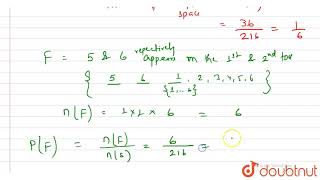 space
= 36/216 = 1/6
F = 5 & 6 repectively appears on the 1st & 2nd tos
{ 5 6 1, 2, 3, 4, 5, 6
{1...6} }
n(F) = 1 x 1 x 6 = 6
P(F) = n(F)/n(s) = 6/216 =
doubtnut